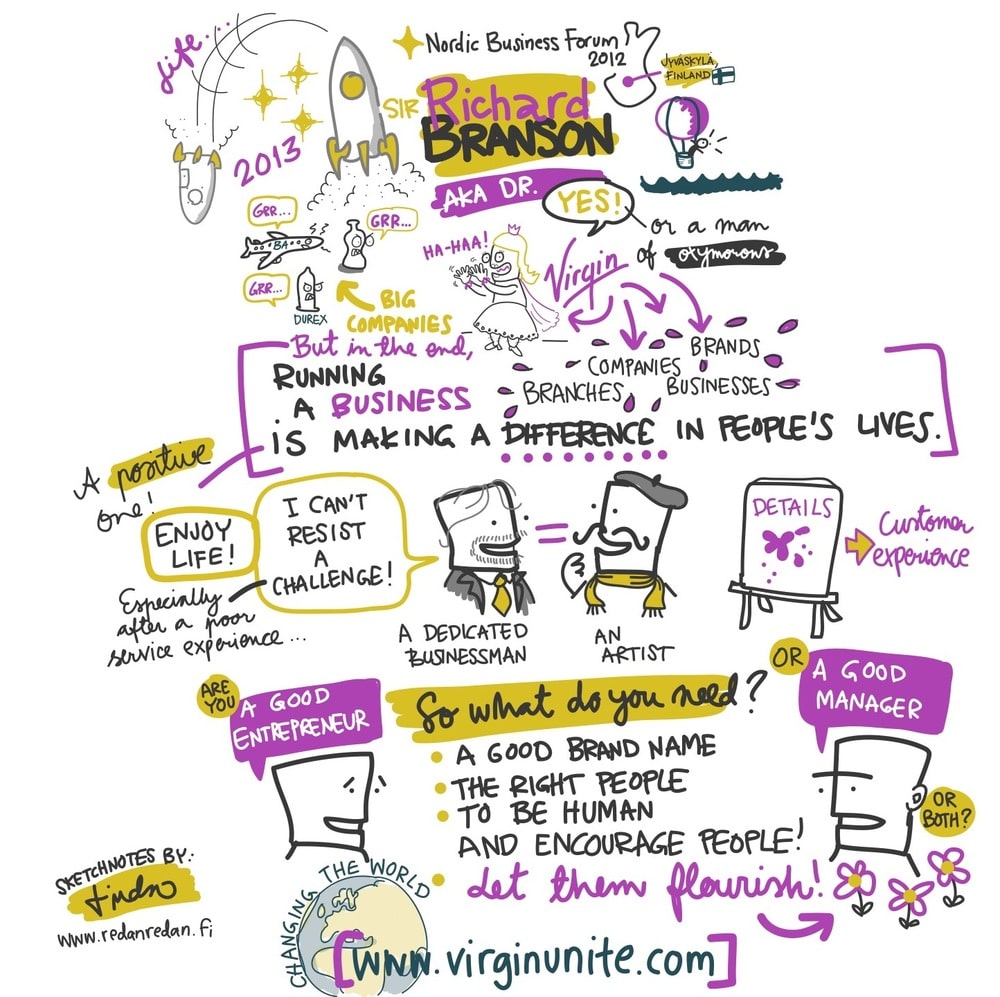 Life...
Nordic Business Forum
2012
JYVÄSKYLÄ,
FINLAND
SIR Richard
BRANSON
2013
AKA DR. YES!
or a man
of oxymorons
GRR...
GRR...
BA
HA-HAA!
Virgin
GRR...
DUREX
BIG
COMPANIES
BRANDS
COMPANIES
BUSINESSES
BRANCHES
But in the end,
RUNNING
A BUSINESS
IS MAKING A DIFFERENCE IN PEOPLE'S LIVES.
A positive
one!
ENJOY
LIFE!
I CAN'T
RESIST
A
CHALLENGE!
Especially
after a poor
service experience...
=
A DEDICATED
BUSINESSMAN
AN
ARTIST
DETAILS
Customer
experience
ARE
YOU
A GOOD
ENTREPRENEUR
OR
A GOOD
MANAGER
OR
BOTH?
So what do you need?
• A GOOD BRAND NAME
• THE RIGHT PEOPLE
• TO BE HUMAN
AND ENCOURAGE PEOPLE!
• Let them flourish!
SKETCHNOTES BY:
www.redanredan.fi
CHANGING THE WORLD
[www.virginunite.com]